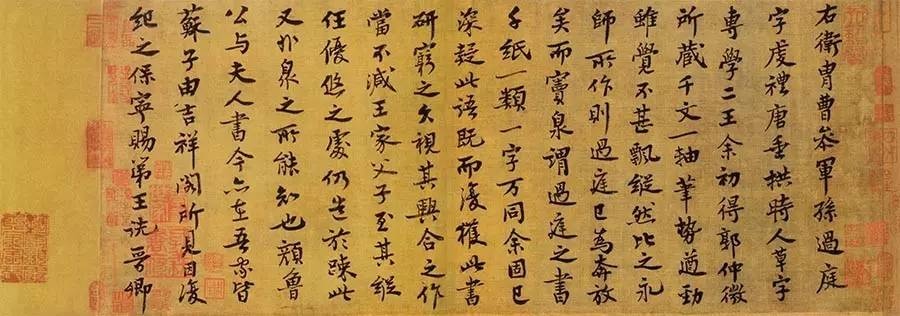 右衛胄曹叅軍孫過庭
字虔禮唐垂拱時人草字
專學二王余初得郭仲微
所藏千文一軸筆勢遒勁
雖覺不甚飄縱然比之永
師所作則過庭已為奔放
矣而竇泉謂過庭之書
千紙一類一字万同余固已
深疑此語既而復獲此書
研窮之久視其興合之作
當不減王家父子至其縱
任優悠之處仍造於踈此
又非泉之所能知也顏魯
公与夫人書今亦在吾家皆
蘇子由吉祥閣所見因復
紀之保寧賜第王詵晉卿